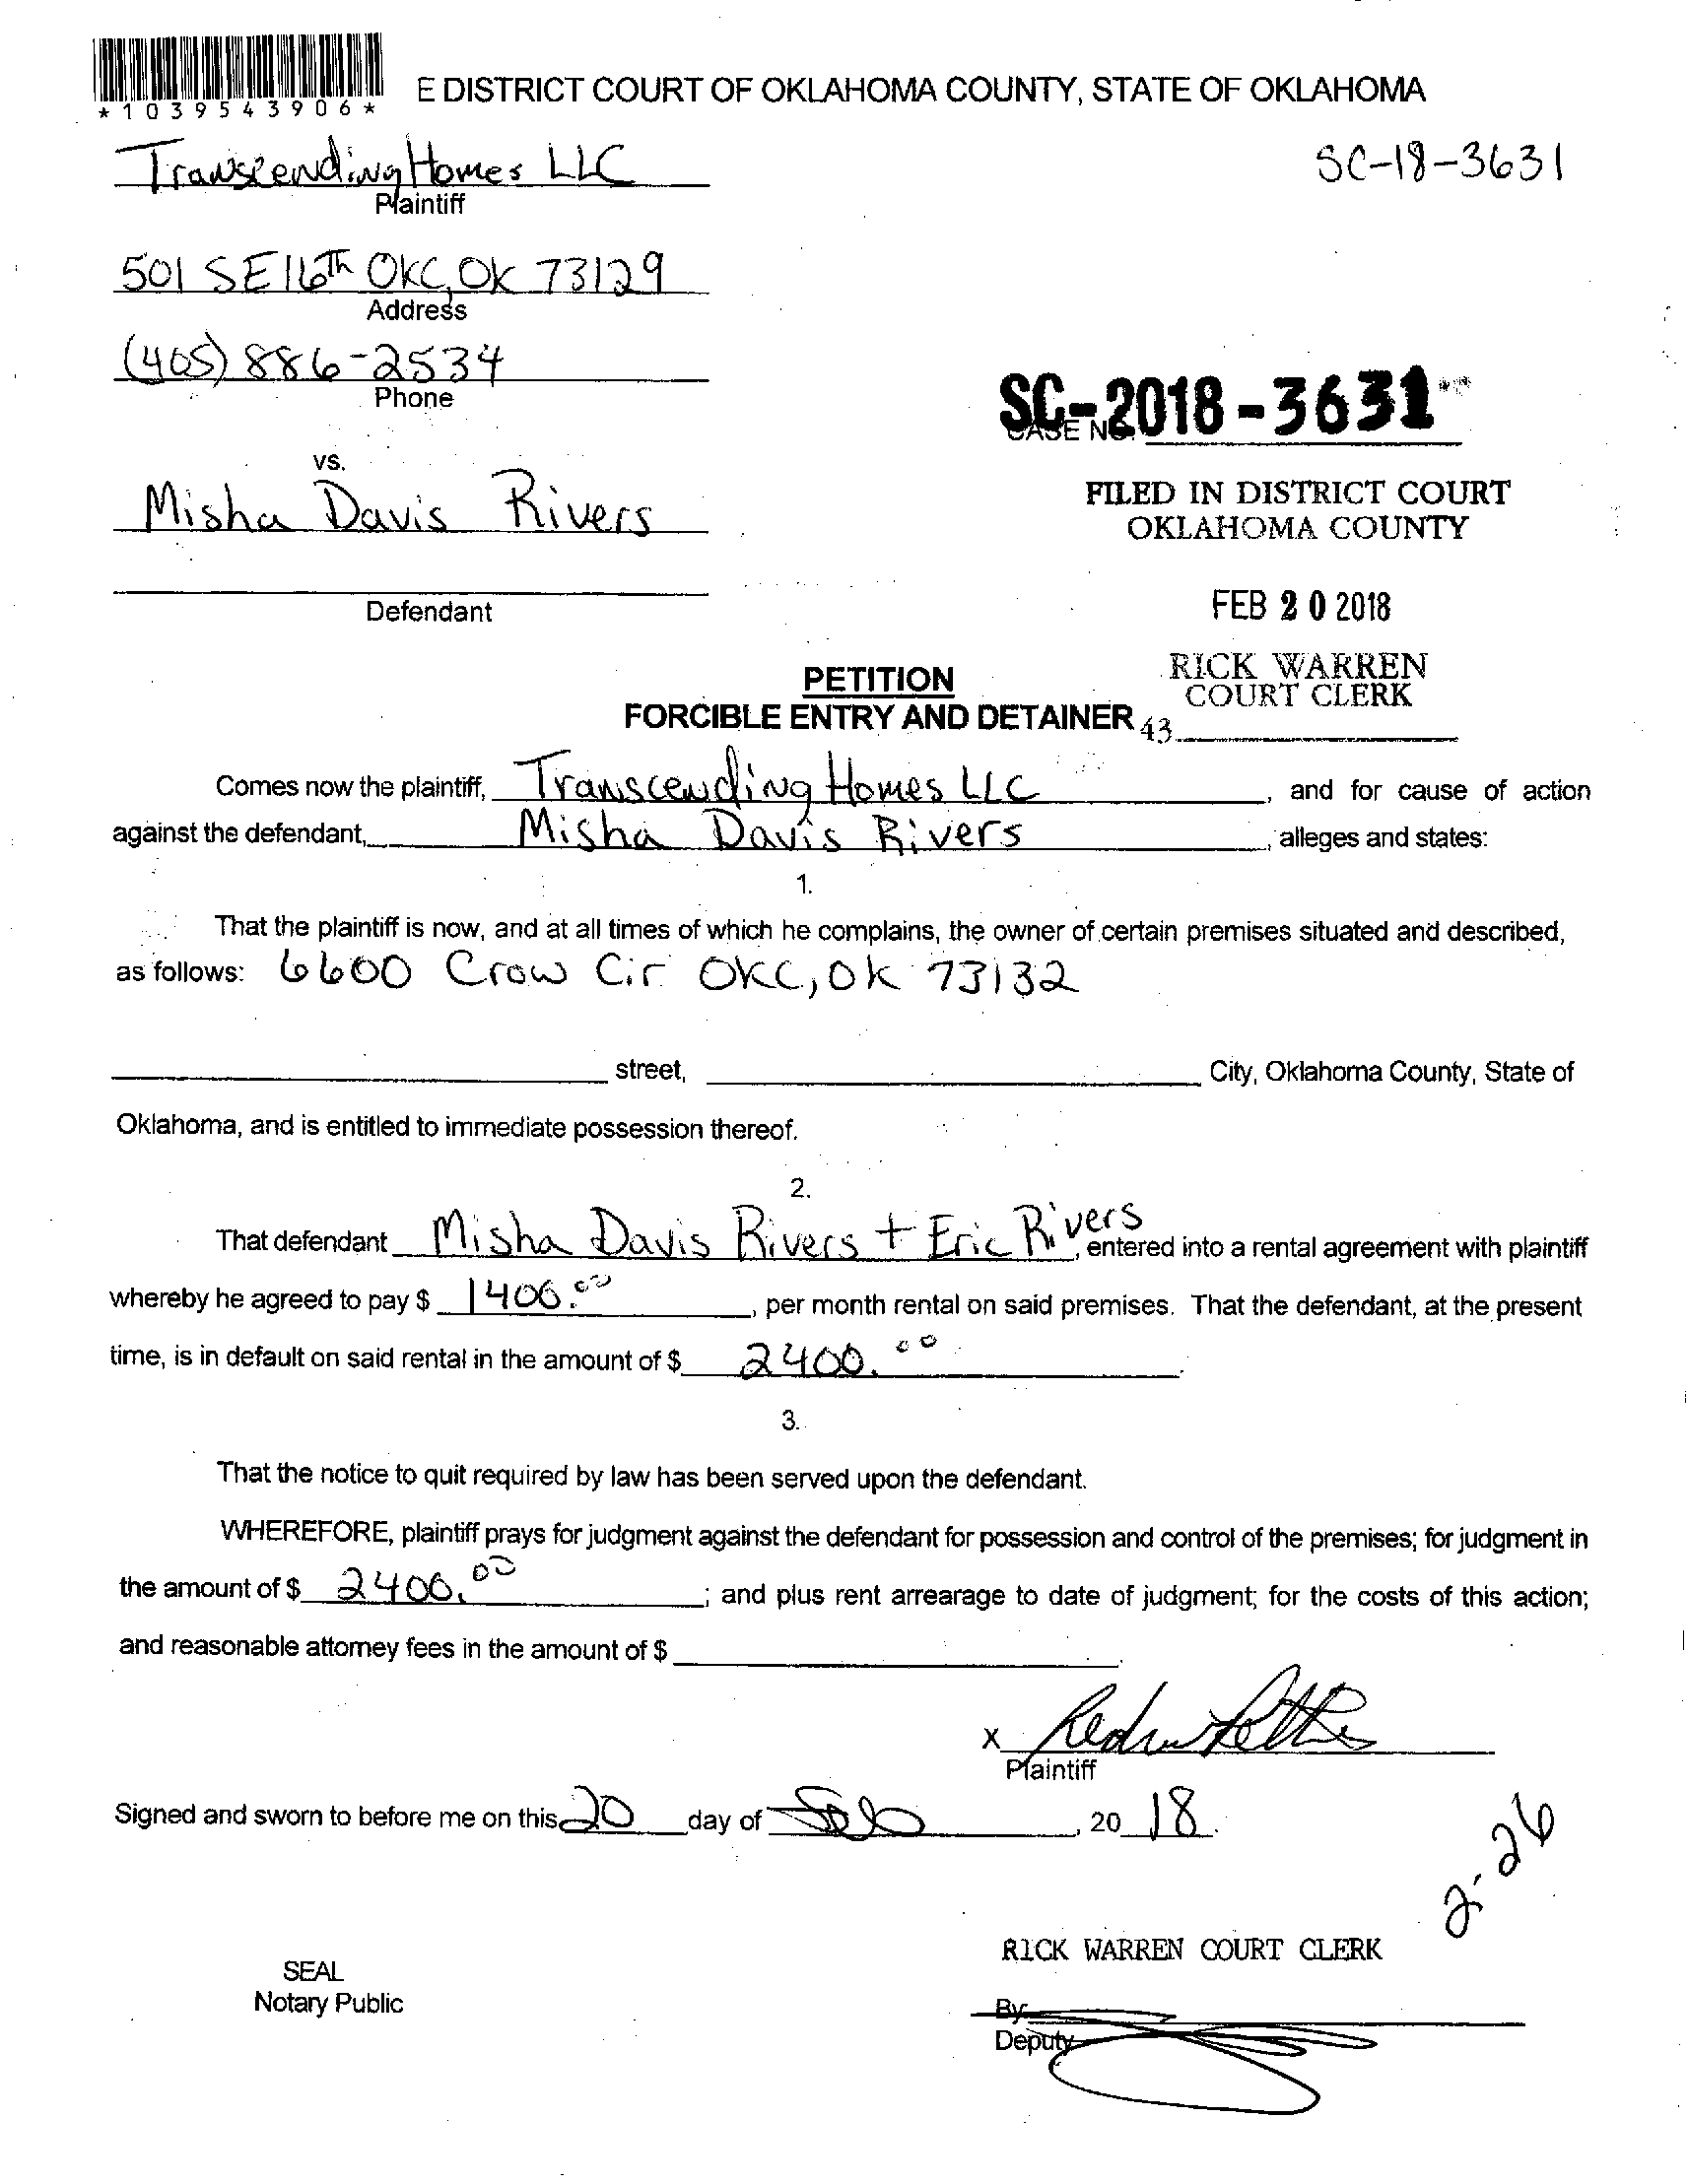 *1039543906*
E DISTRICT COURT OF OKLAHOMA COUNTY, STATE OF OKLAHOMA
Transcending Homes LLC
SC-18-3631
Plaintiff
501 SE 16Th OKC, OK 73129
Address
(405) 886-2534
Phone
SC-2018-3631
CASE NO.
vs.
Misha Davis Rivers
FILED IN DISTRICT COURT
OKLAHOMA COUNTY
Defendant
FEB 20 2018
PETITION
RICK WARREN
COURT CLERK
FORCIBLE ENTRY AND DETAINER
43
Comes now the plaintiff, Transcending Homes LLC, and for cause of action
against the defendant, Misha Davis Rivers, alleges and states:
1.
That the plaintiff is now, and at all times of which he complains, the owner of certain premises situated and described,
as follows: 6600 Crow Cir OKC, OK 73132
street, City, Oklahoma County, State of
Oklahoma, and is entitled to immediate possession thereof.
2.
That defendant Misha Davis Rivers + Eric Rivers, entered into a rental agreement with plaintiff
whereby he agreed to pay $ 1400.00, per month rental on said premises. That the defendant, at the present
time, is in default on said rental in the amount of $ 2400.00.
3.
That the notice to quit required by law has been served upon the defendant.
WHEREFORE, plaintiff prays for judgment against the defendant for possession and control of the premises; for judgment in
the amount of $ 2400.00; and plus rent arrearage to date of judgment; for the costs of this action;
and reasonable attorney fees in the amount of $
X
Plaintiff
Signed and sworn to before me on this 20 day of, 20 18.
2-26
RICK WARREN COURT CLERK
SEAL
Notary Public
By
Deputy